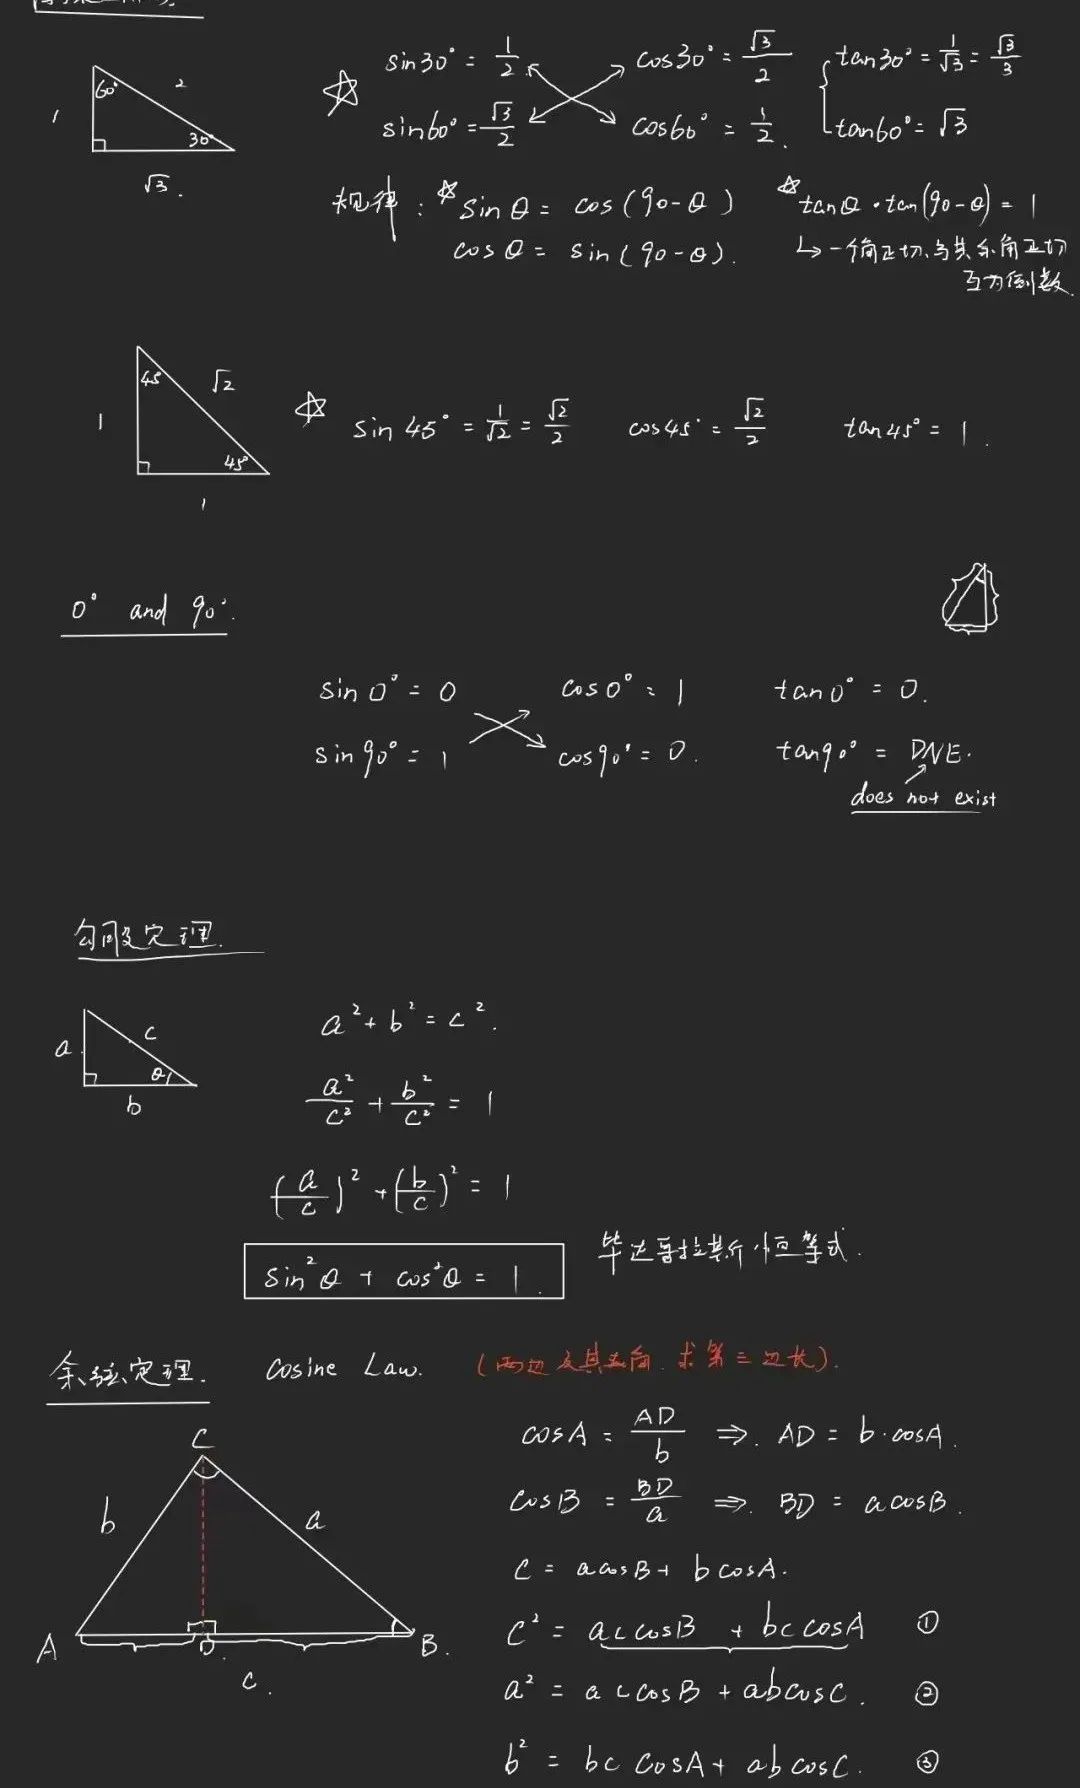 sin30° = 1/2 cos30° = √3/2 tan30° = 1/√3 = √3/3
sin60° = √3/2 cos60° = 1/2. tan60° = √3
60° 2
1 30°
√3.
规律: sinθ = cos(90-θ) tanθ·tan(90-θ) = 1
cosθ = sin(90-θ). ↳ 一个角正切与其余角正切
互为倒数.
45° √2
1 sin 45° = 1/√2 = √2/2 cos45° = √2/2 tan45° = 1.
45°
1
0° and 90°.
sin0° = 0 cos0° = 1 tan0° = 0.
sin90° = 1 cos90° = 0. tan90° = DNE.
does not exist
勾股定理.
a² + b² = c².
a c θ
b
a²/c² + b²/c² = 1
(a/c)² + (b/c)² = 1
sin²θ + cos²θ = 1. 毕达哥拉斯恒等式.
余弦定理. cosine Law. (两边及其夹角.求第三边长).
cosA = AD/b ⇒. AD = b·cosA.
cosB = BD/a ⇒. BD = acosB.
c = acosB + bcosA.
c² = accosB + bccosA ①
a² = accosB + abcosC. ②
b² = bc cosA + abcosC. ③
C
b a
A D B.
c.